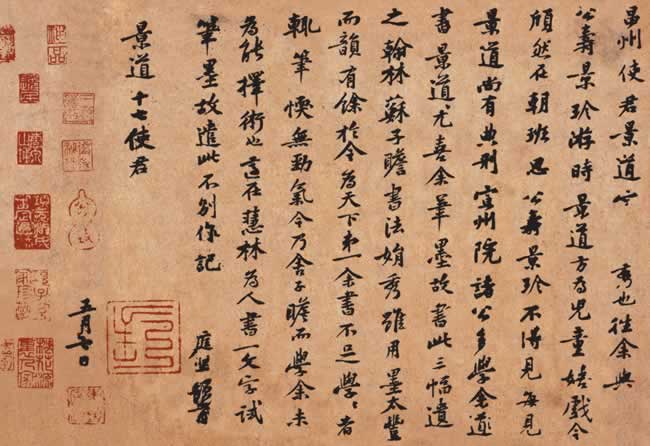 昌州使君景道 秀也往余與
公壽景珍游時景道方為兒童嬉戲今
頎然在朝班思公壽景珍不得見每見
景道尚有典刑宣州院諸公多學余
書景道尤喜余筆墨故書此三幅遺
之翰林蘇子瞻書法娟秀雖用墨太豐
而韻有餘於今為天下第一余書不足學學者
輒筆愞無勁氣今乃舍子瞻而學余未
為能擇術也適在慧林為人書一文字試
筆墨故遣此不別作記
庭堅頓首
景道十七使君
五月七日